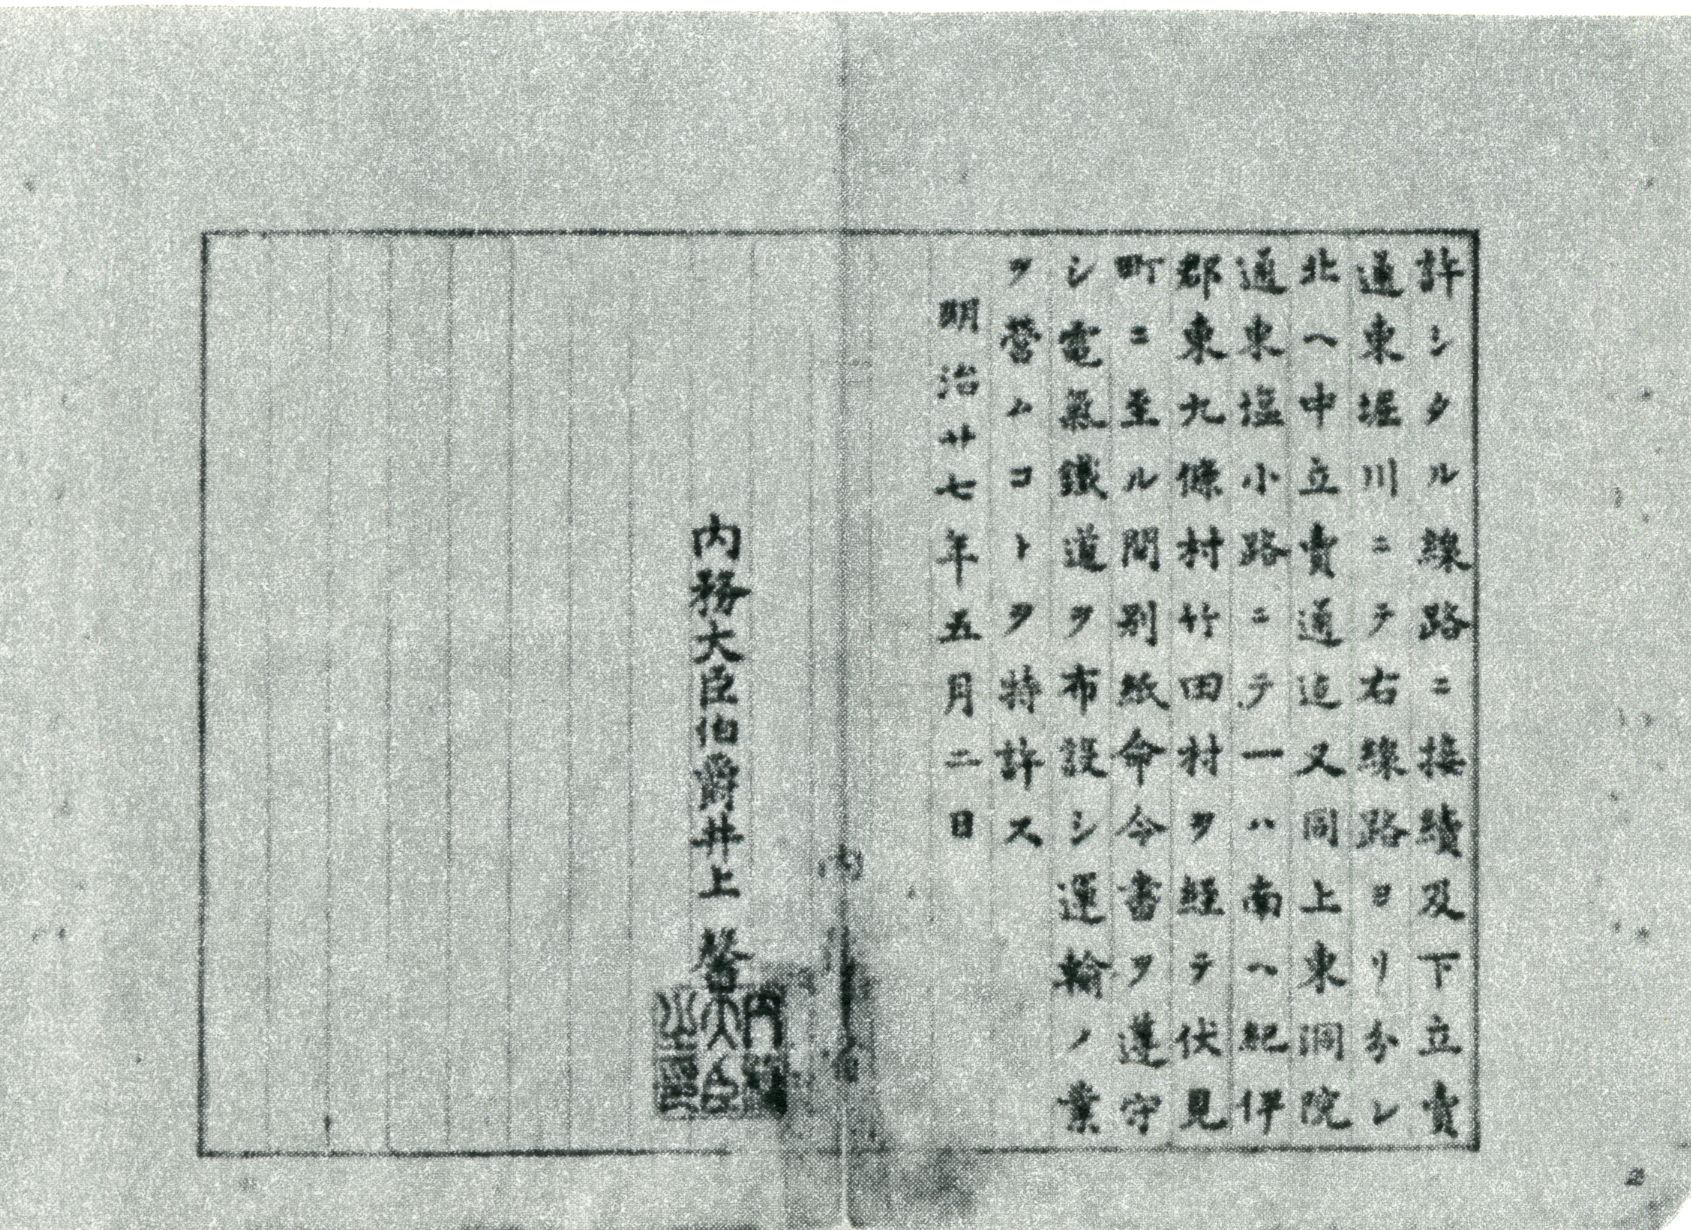 許シタル線路ニ接續及下立賣
通東堀川ニテ右線路ヨリ分レ
北ヘ中立賣通迠又同上東洞院
通東塩小路ニテ一ハ南ヘ紀伊
郡東九條村竹田村ヲ経テ伏見
町ニ至ル間別紙命令書ヲ遵守
シ電氣鐵道ヲ布設シ運輸ノ業
ヲ營ムコトヲ特許ス
明治廿七年五月二日
内務大臣伯爵井上馨
内務大臣之印
2